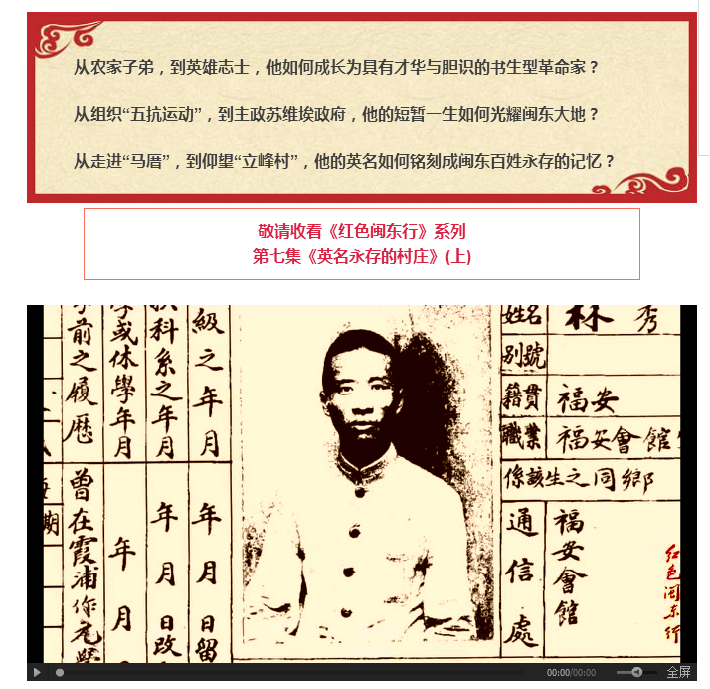 从农家子弟，到英雄志士，他如何成长为具有才华与胆识的书生型革命家？
从组织“五抗运动”，到主政苏维埃政府，他的短暂一生如何光耀闽东大地？
从走进“马厝”，到仰望“立峰村”，他的英名如何铭刻成闽东百姓永存的记忆？
敬请收看《红色闽东行》系列
第七集《英名永存的村庄》(上)
姓名
林
秀
别號
籍貫
福安
職業
福安會館
係該生之同鄉
通信處
福安會館
級之年月
年月日留
科系之年月
年月日改
學或休學年月
年月
前之履歷
曾在霞浦作元學
期
红色闽东行
00:00/00:00
全屏